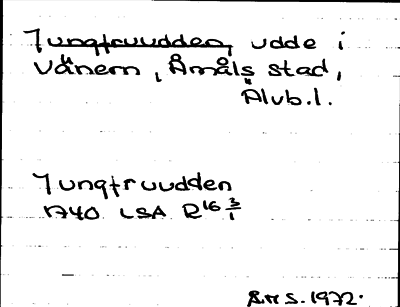 Jungfruudden, udde i
Vänern, Åmåls stad,
Älvb.l.
Jungfruudden
1740 LSA R16 3/1
S.H S. 1972.